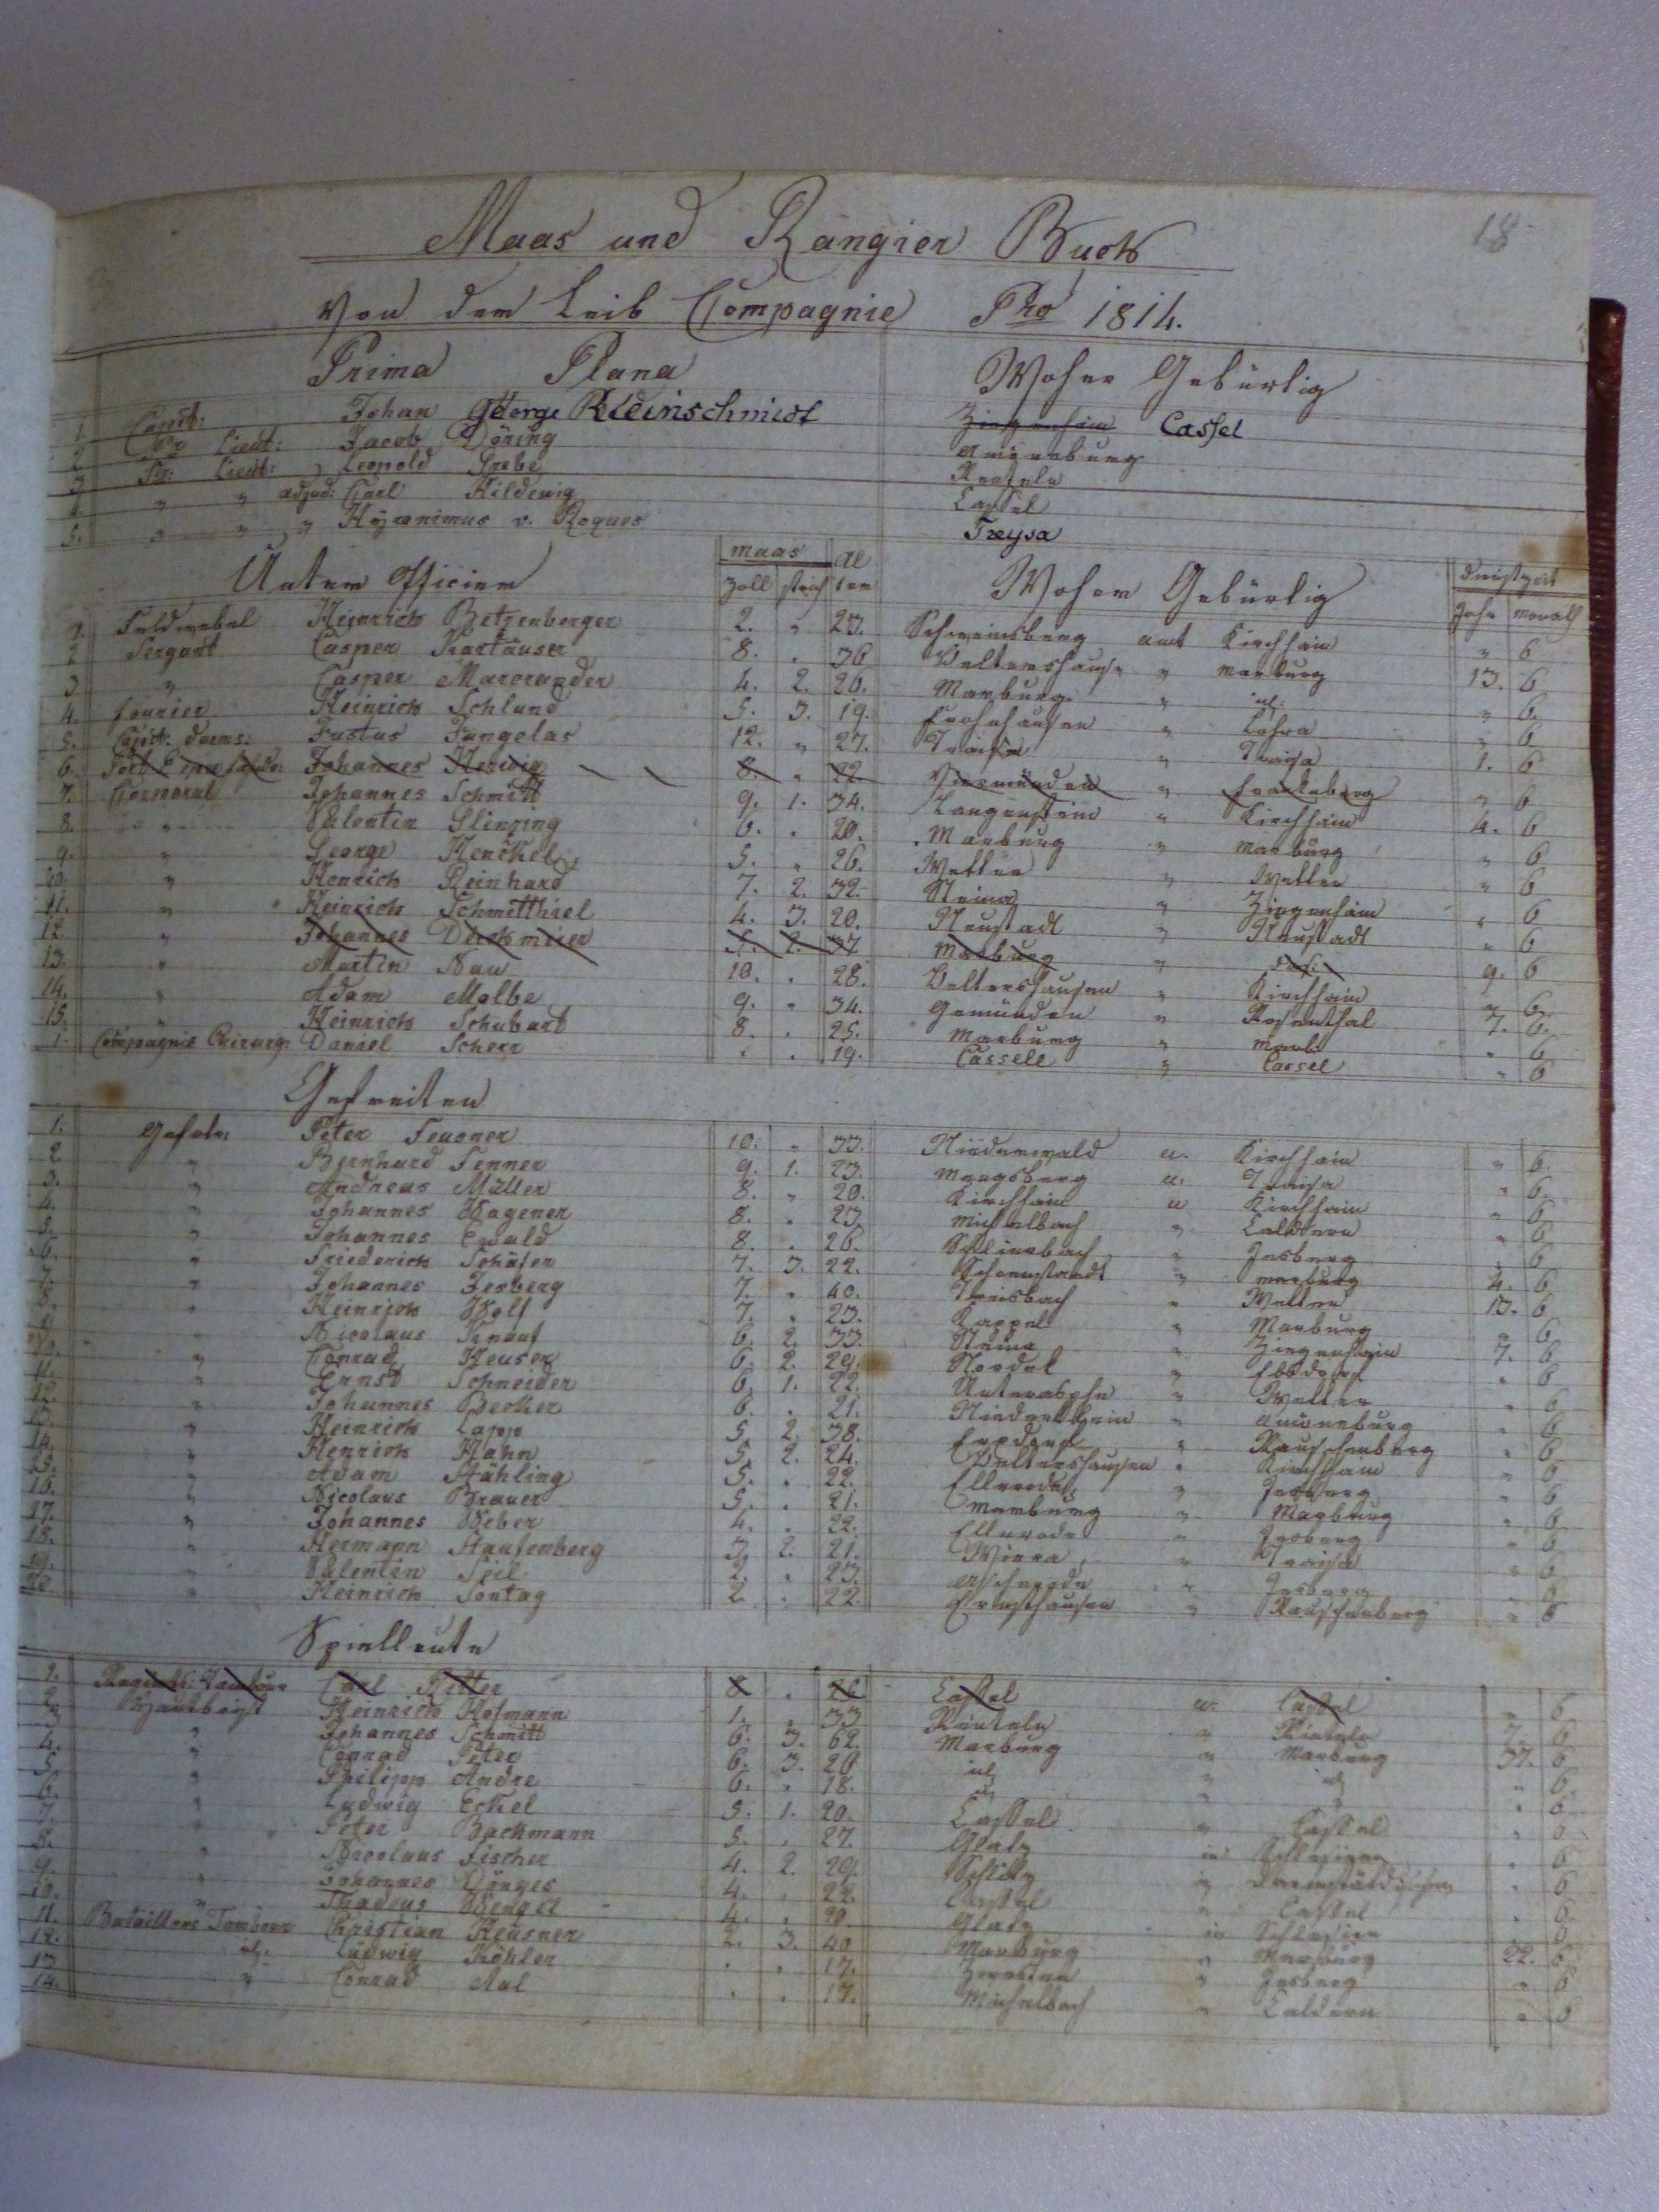 18
Maas und Rangier Buch
Von der Leib Compagnie Pro 1814.
Prima Plana Woher Gebürtig
1. Capit: Johan George Kleinschmidt Ziegenhain Cassel
2. Pr: Lieut: Jacob Döring Amöneburg
3. Sec: Lieut: Leopold Grebe Rinteln
4. " " adjud: Carl Hildewig Cassel
5. " " " Hyronimus v. Roques Treysa
Unter Officier maas Zoll strich Alter Woher Gebürtig dienstzeit Jahr monath
1. Feldwebel Heinrich Betzenberger 2. " 23. Schweinsberg amt Kirchhain " 6
2 Sergant Casper Kartäuser 8. . 36 Veltershausn " marburg 13. 6
3 " Casper Marerander 4. 2. 20. Marburg " id: " 6.
4. Fourier Heinrich Schlund 5. 3. 19. Frohnhausen " Lohra " 6
5. Capit: darms: Justus Jungelas 12. " 27. Traisa " Traisa 1. 6
6. Johannes Herwig 8. . 22. Viermünden " Frankeberg " 6
7. Corporal Johannes Schmitt 9. 1. 34. Langenstein " Kirchhain 4. 6
8. " Valentin Slinzing 6. . 20. Marburg " marburg " 6
9. " George Henckel 5. " 26. Wetter " Wetter " 6
10. " Henrich Reinhard 7. 2. 32. Steina " Ziegenhain " 6
11. " Heinrich Schmitthiel 4. 3. 20. Neustadt " Neustadt " 6
12 " Johannes Dickmeier 5. 2. 37 Marburg " 9. 6
13. " Martin Nau 10. . 28. Veltershausen " Kirchhain " 6
14. " Adam Malbe 9. " 34. Gemünden " Rosenthal 7. 6.
15. " Heinrich Schubart 8. . 25. Marburg " Marb: " 6
1. Compagnie Chirurg: Daniel Scherr . . 19. Cassele " Cassel " 6
Gefreiten
1. Gefrtr Peter Feusner 10. " 33. Niederwald a. Kirchhain " 6.
2 " Bernhard Fenner 9. 1. 23. Mengsberg a. Traisa " 6.
3. " Andreas Müller 8. " 20. Kirchhain a Kirchhain " 6
4. " Johannes Wagener 8. . 23 Michelbach " Caldern " 6
5. " Johannes Ewald 8. . 26. Schlierbach " Jesberg " 6
6. " Friederich Schäfer 7. 3. 22. Schrenstandt " marburg 4. 6
7. " Johannes Jesberg 7. " 40. Treisbach " Wetter 13. 6
8. " Heinrich Wolf 7. . 23. Kappel " Marburg " 6
9. " Nicolaus Knauf 6. 2. 33. Steina " Ziegenhain 7. 6
10. " Conrad Heuser 6. 2. 29. Nordek " Ebsdorf " 6
11. " Ernst Schneider 6. 1. 22. Unterasphe " Wetter " 6
12. " Johannes Becker 6. . 21. Niederklein " Amöneburg " 6
13. " Heinrich Lapp 5. 2. 38. Erxdorf " Rauschenberg " 6
14. " Henrich Hahn 5. 2. 24. Veltershausen " Kirchhain " 6
15. " Adam Stähling 5. . 22. Ellnrode " Jesberg " 6
16. " Nicolaus Brauer 5. . 21. Marburg " Marburg " 6
17. " Johannes Weber 4. . 22. Ellnrode " Jesberg " 6
18. " Hermann Staufenberg 3 2. 21. Wiera " Traisa " 6
19. " Valentin Seil 2. . 23. " Jesberg " 6
20 " Heinrich Sontag 2. . 22. Ernsthausen " Rauschenberg " 6
Spielleute
1. Regimts: Tambour Carl Ritter 8 . 26 Cassel a. Cassel " 6
2. Hautboist Heinrich Hofmann 1. . 33 Rinteln " Rinteln 7. 6
3. " Johannes Schmitt 6. 3. 62. Marburg " Marburg 37. 6
4. " Conrad Peter 6. 3. 20 id " id " 6
5. " Philipp Andre 6. . 18. id " " " 6
6. " Ludwig Eckel 5. 1. 20. Cassel " Cassel " 6
7. " Peter Backmann 5. . 27. Glatz in Schlesien " 6
8. " Nicolaus Fischer 4. 2. 29. Schlitz in Darmstädtischen " 6
9. " Johannes Dönges 4. . 22. Cassel " Cassel " 6
10. " Thadeus Wengel 4. . 20. Glatz in Schlesien " 6
11. Bataillons Tambour Christian Heusner 2. 3. 40 Marburg " Marburg 22. 6
12. id. Ludwig Köhler . . 17. Zwesten " Jesberg " 6
13 " Conrad Aul . . 17. Michelbach " Caldern " 6
14.